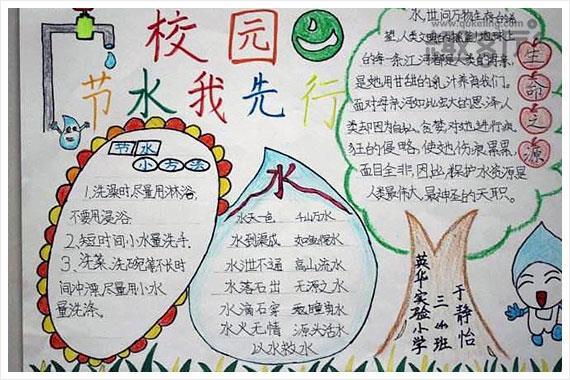 校园
节水我先行
节水
小方法
1.洗澡时,尽量用淋浴,
不要用浸浴.
2.短时间小水量洗手.
3.洗菜、洗碗等不长时
间冲漂,尽量用小水
量洗涤.
水
水天一色 千山万水
水到渠成 如鱼得水
水泄不通 高山流水
水落石出 无源之水
水滴石穿
水火无情 源头活水
以水救水
水,世间万物生存
望,人类文明的摇篮!地球上
的每一条江河都是人类的母亲,
是她用甘甜的乳汁养育我们。
面对母亲河如此大的恩泽,人
类却因为自私、贪婪,对她进行疯
狂的侵略,使她伤痕累累,
面目全非,因此,保护水资源是
人类最伟大、最神圣的天职。
生命之源
英华实验小学
三4班
于静怡